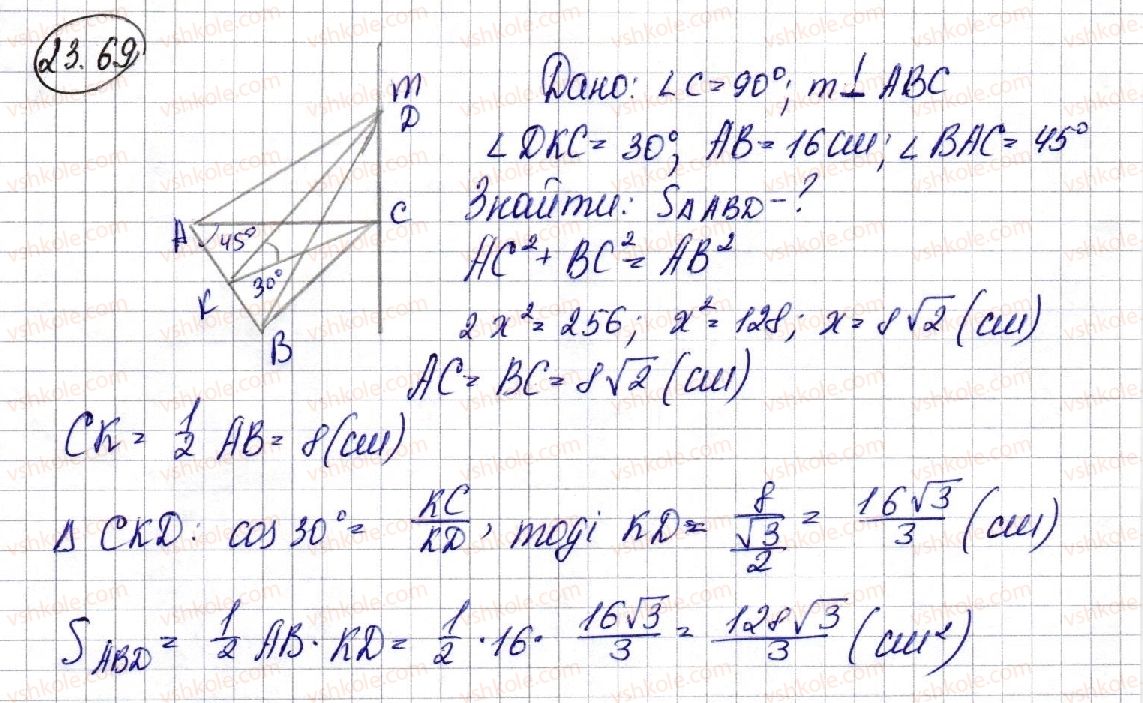 23.69
m
D
A
45°
C
30°
K
B
Дано: ∠C = 90°; m⊥ABC
∠DKC = 30°; AB = 16 см; ∠BAC = 45°
Знайти: S△ABD - ?
AC² + BC² = AB²
2x² = 256; x² = 128; x = 8√2 (см)
AC = BC = 8√2 (см)
CK = 1/2 AB = 8 (см)
△ CKD: cos 30° = KC/KD, тоді KD = 8/(√3/2) = 16√3/3 (см)
S ABD = 1/2 AB · KD = 1/2 · 16 · 16√3/3 = 128√3/3 (см²)
vshkole.com